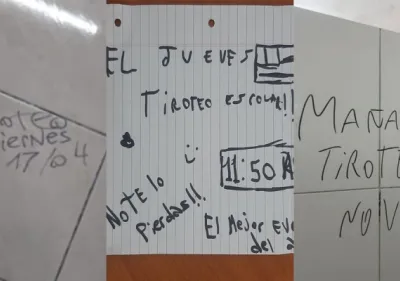 OTEO
iernes
17/04
EL JUEVES
TIROTEO ESCOLAR!!
11:50 A
NOTE lo
pierdas!!!
El Mejor EVE
del a
MAÑA
TIROTE
NO V